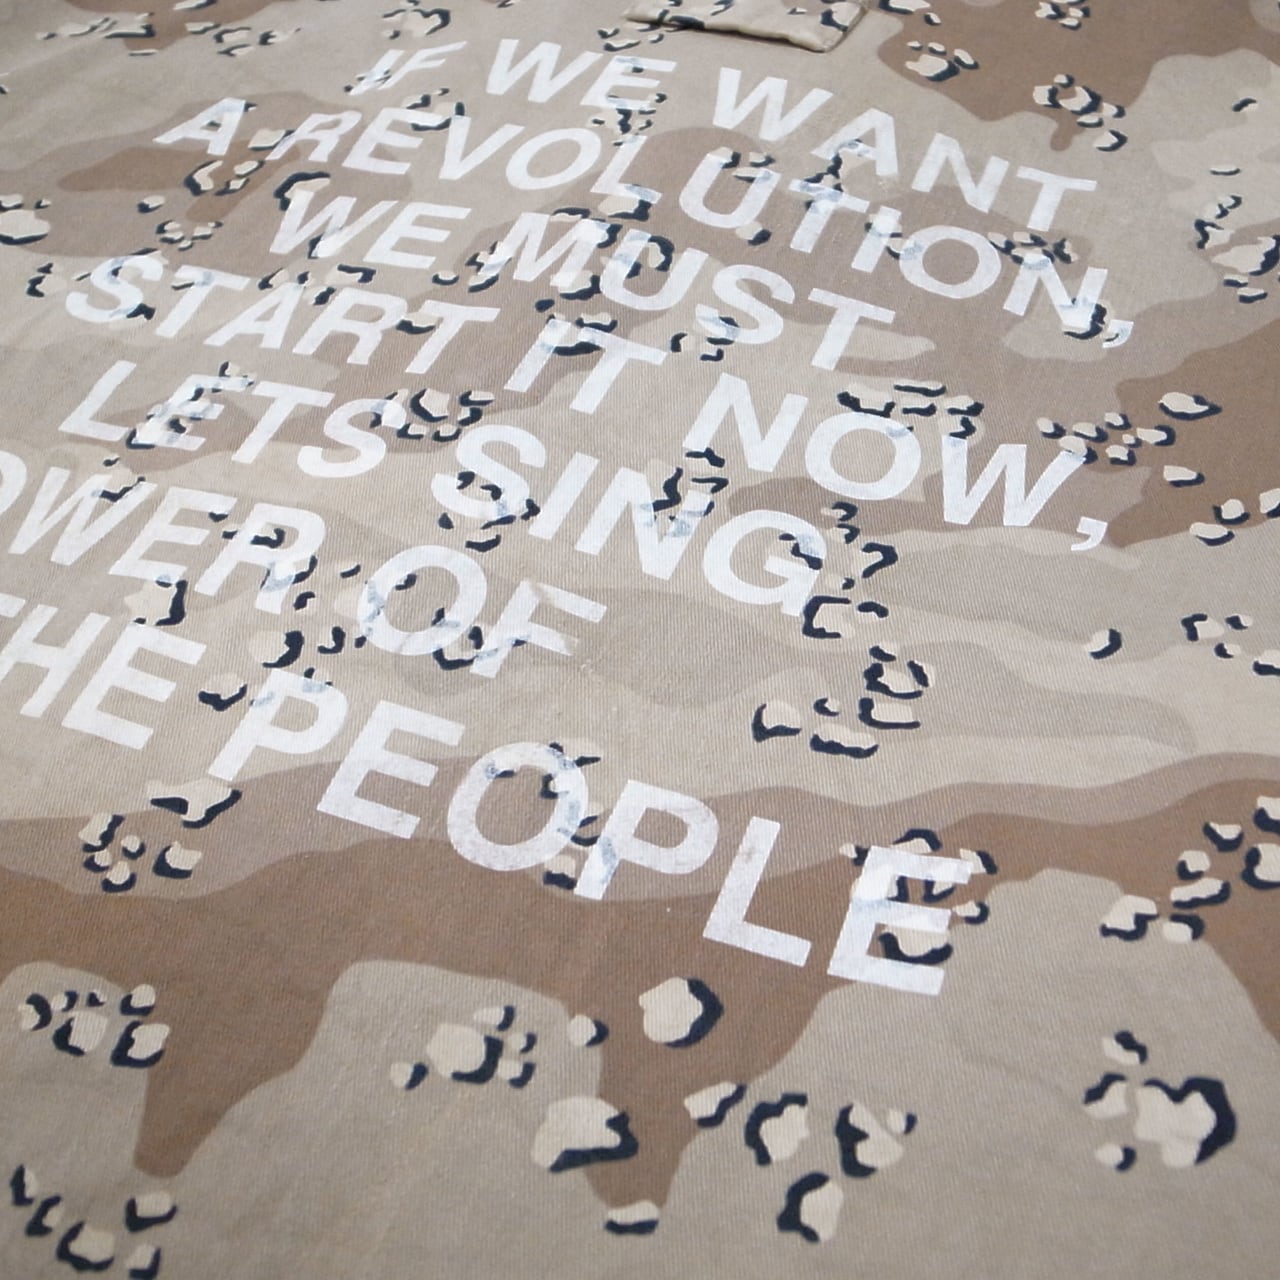 IF WE WANT
A REVOLUTION,
WE MUST
START IT NOW,
LETS SING
OWER OF
THE PEOPLE